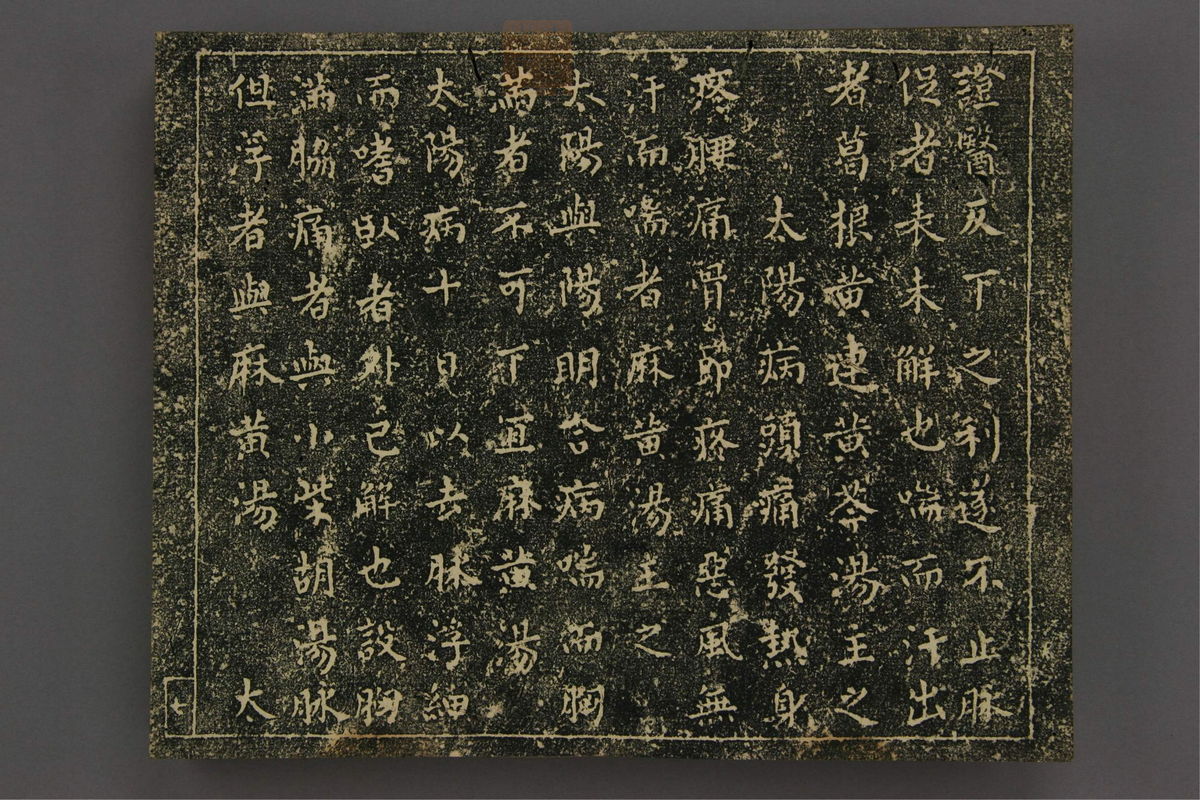 證醫反下之利遂不止脉
促者表未解也喘而汗出
者葛根黄連黄芩湯主之
太陽病頭痛發熱身
疼腰痛骨節疼痛惡風無
汗而喘者麻黄湯主之
太陽與陽明合病喘而胸
滿者不可下宜麻黄湯
太陽病十日以去脉浮細
而嗜卧者外已解也設胸
滿脇痛者與小柴胡湯脉
但浮者與麻黄湯　太